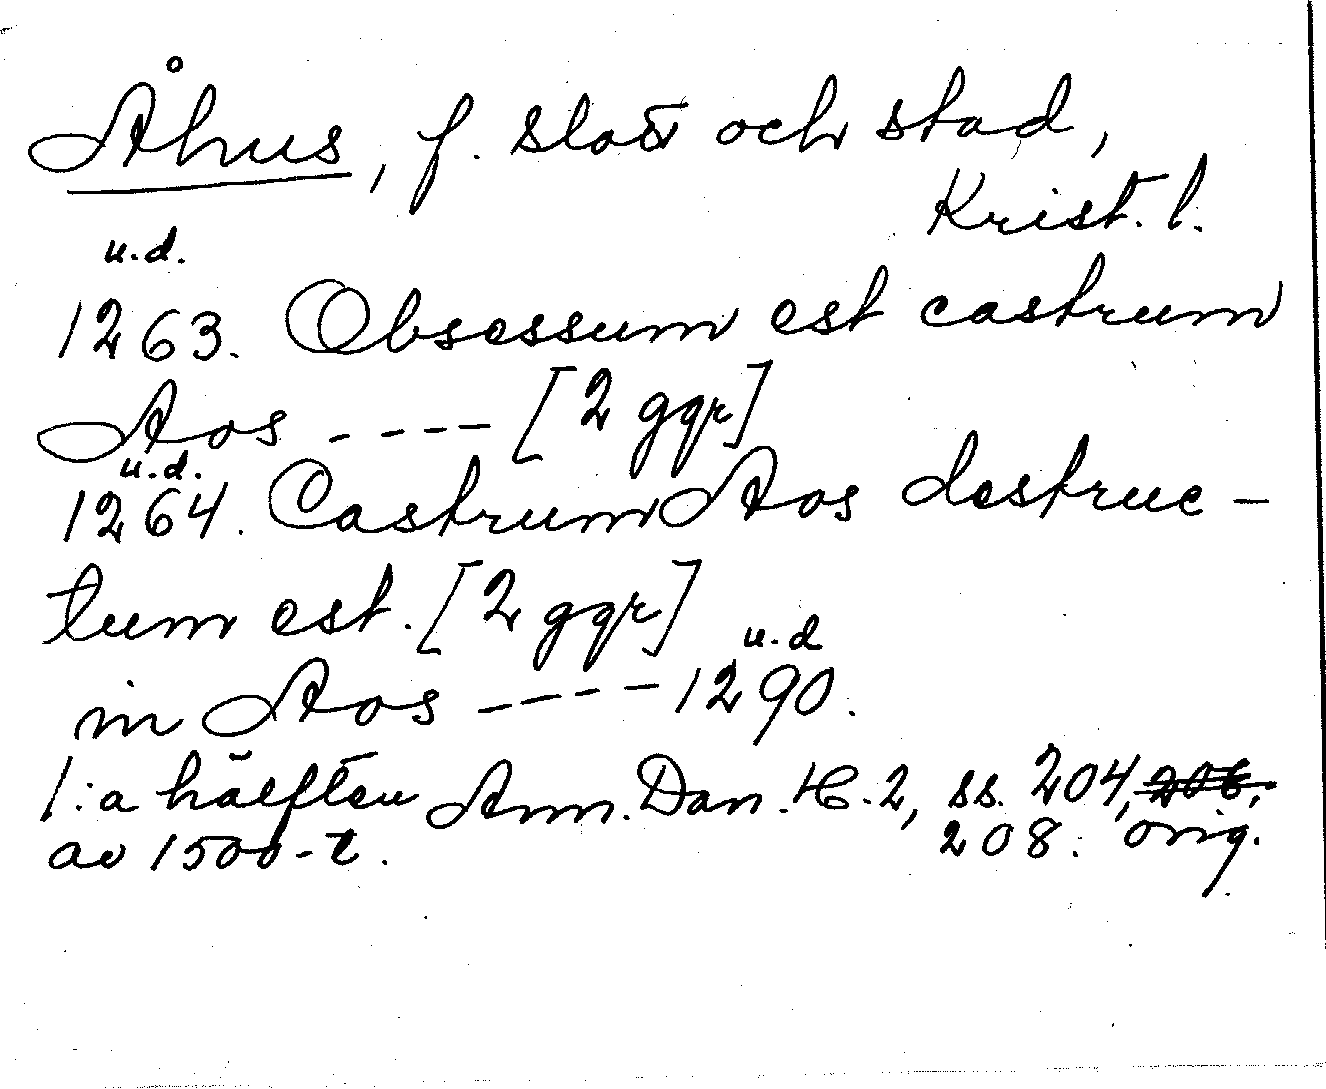 Åhus, f. slott och stad,
Krist. l.
u.d.
1263. Obsessum est castrum
Aos ---- [2 ggr]
u.d.
1264. Castrum Aos destruc-
tum est. [2 ggr]
u.d
in Aos ---- 1290.
1:a hälften Ann. Dan. H. 2, ss. 204, 206,
av 1500-t. 208. orig.